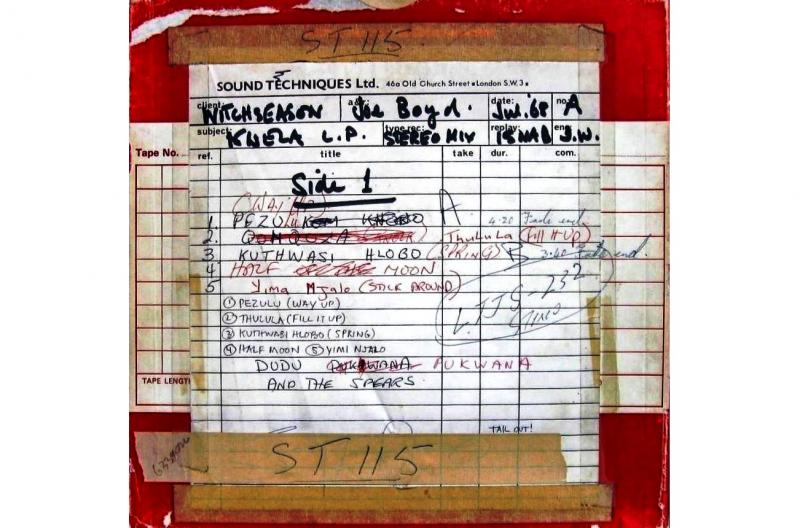 ST 115
SOUND TECHNIQUES Ltd. 46a Old Church Street • London S.W.3 •
client: WITCHSEASON a&r: Joe Boyd. date: Jul. '68 no: A
subject: KWELA L.P. type rec: STEREO MIX replay: 15 NAB eng: J.W.
Tape No.
ref. title take dur. com.
Side 1
(WAY UP)
1. PEZULU A 4.20 Fade end
2. Thulula (FILL IT UP)
3 KUTHWASI HLOBO (SPRING) B 3:40 Fade end.
4 HALF MOON
5 Yima Njalo (STICK AROUND)
LJJS-232
① PEZULU (WAY UP)
② THULULA (FILL IT UP)
③ KUTHWASI HLOBO (SPRING)
④ HALF MOON ⑤ YIMI NJALO
DUDU PUKWANA
AND THE SPEARS
TAPE LENGTH
TAIL OUT!
ST 115